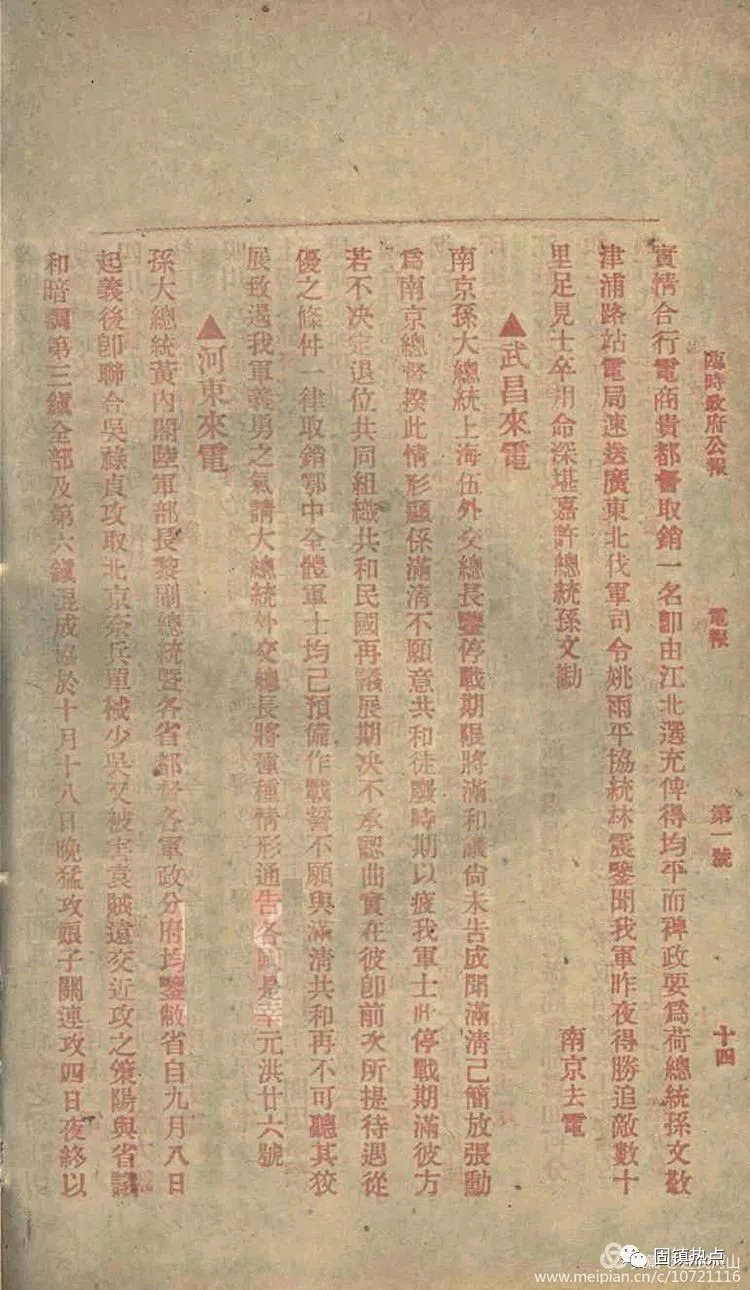 臨時政府公報 電報 第一號 十四
實情合行電商貴都督取銷一名卽由江北選充俾得均平而裨政要爲荷總統孫文敬
南京去電
津浦路站電局速送廣東北伐軍司令姚雨平協統林震鑒聞我軍昨夜得勝追敵數十
里足見士卒用命深堪嘉許總統孫文勘
▲武昌來電
南京孫大總統上海伍外交總長鑒停戰期限將滿和議尙未告成聞滿淸已簡放張勳
爲南京總督揆此情形顯係滿淸不願意共和徒壓時期以疲我軍士此停戰期滿彼方
若不決定退位共同組織共和民國再議展期決不承認曲實在彼卽前次所提待遇從
優之條件一律取銷鄂中全體軍士均已預備作戰誓不願與滿淸共和再不可聽其狡
展致遏我軍義勇之氣請大總統外交總長將種種情形通告各國是幸元洪廿六號
▲河東來電
孫大總統黃內閣陸軍部長黎副總統暨各省都督各軍政分府均鑒敝省自九月八日
起義後卽聯合吳祿貞攻取北京奈兵單械少吳又被害袁賊遠交近攻之策陽與省議
和暗調第三鎭全部及第六鎭混成協於十月十八日晚猛攻娘子關連攻四日夜終以
固镇热点
www.meipian.cn/c/10721116